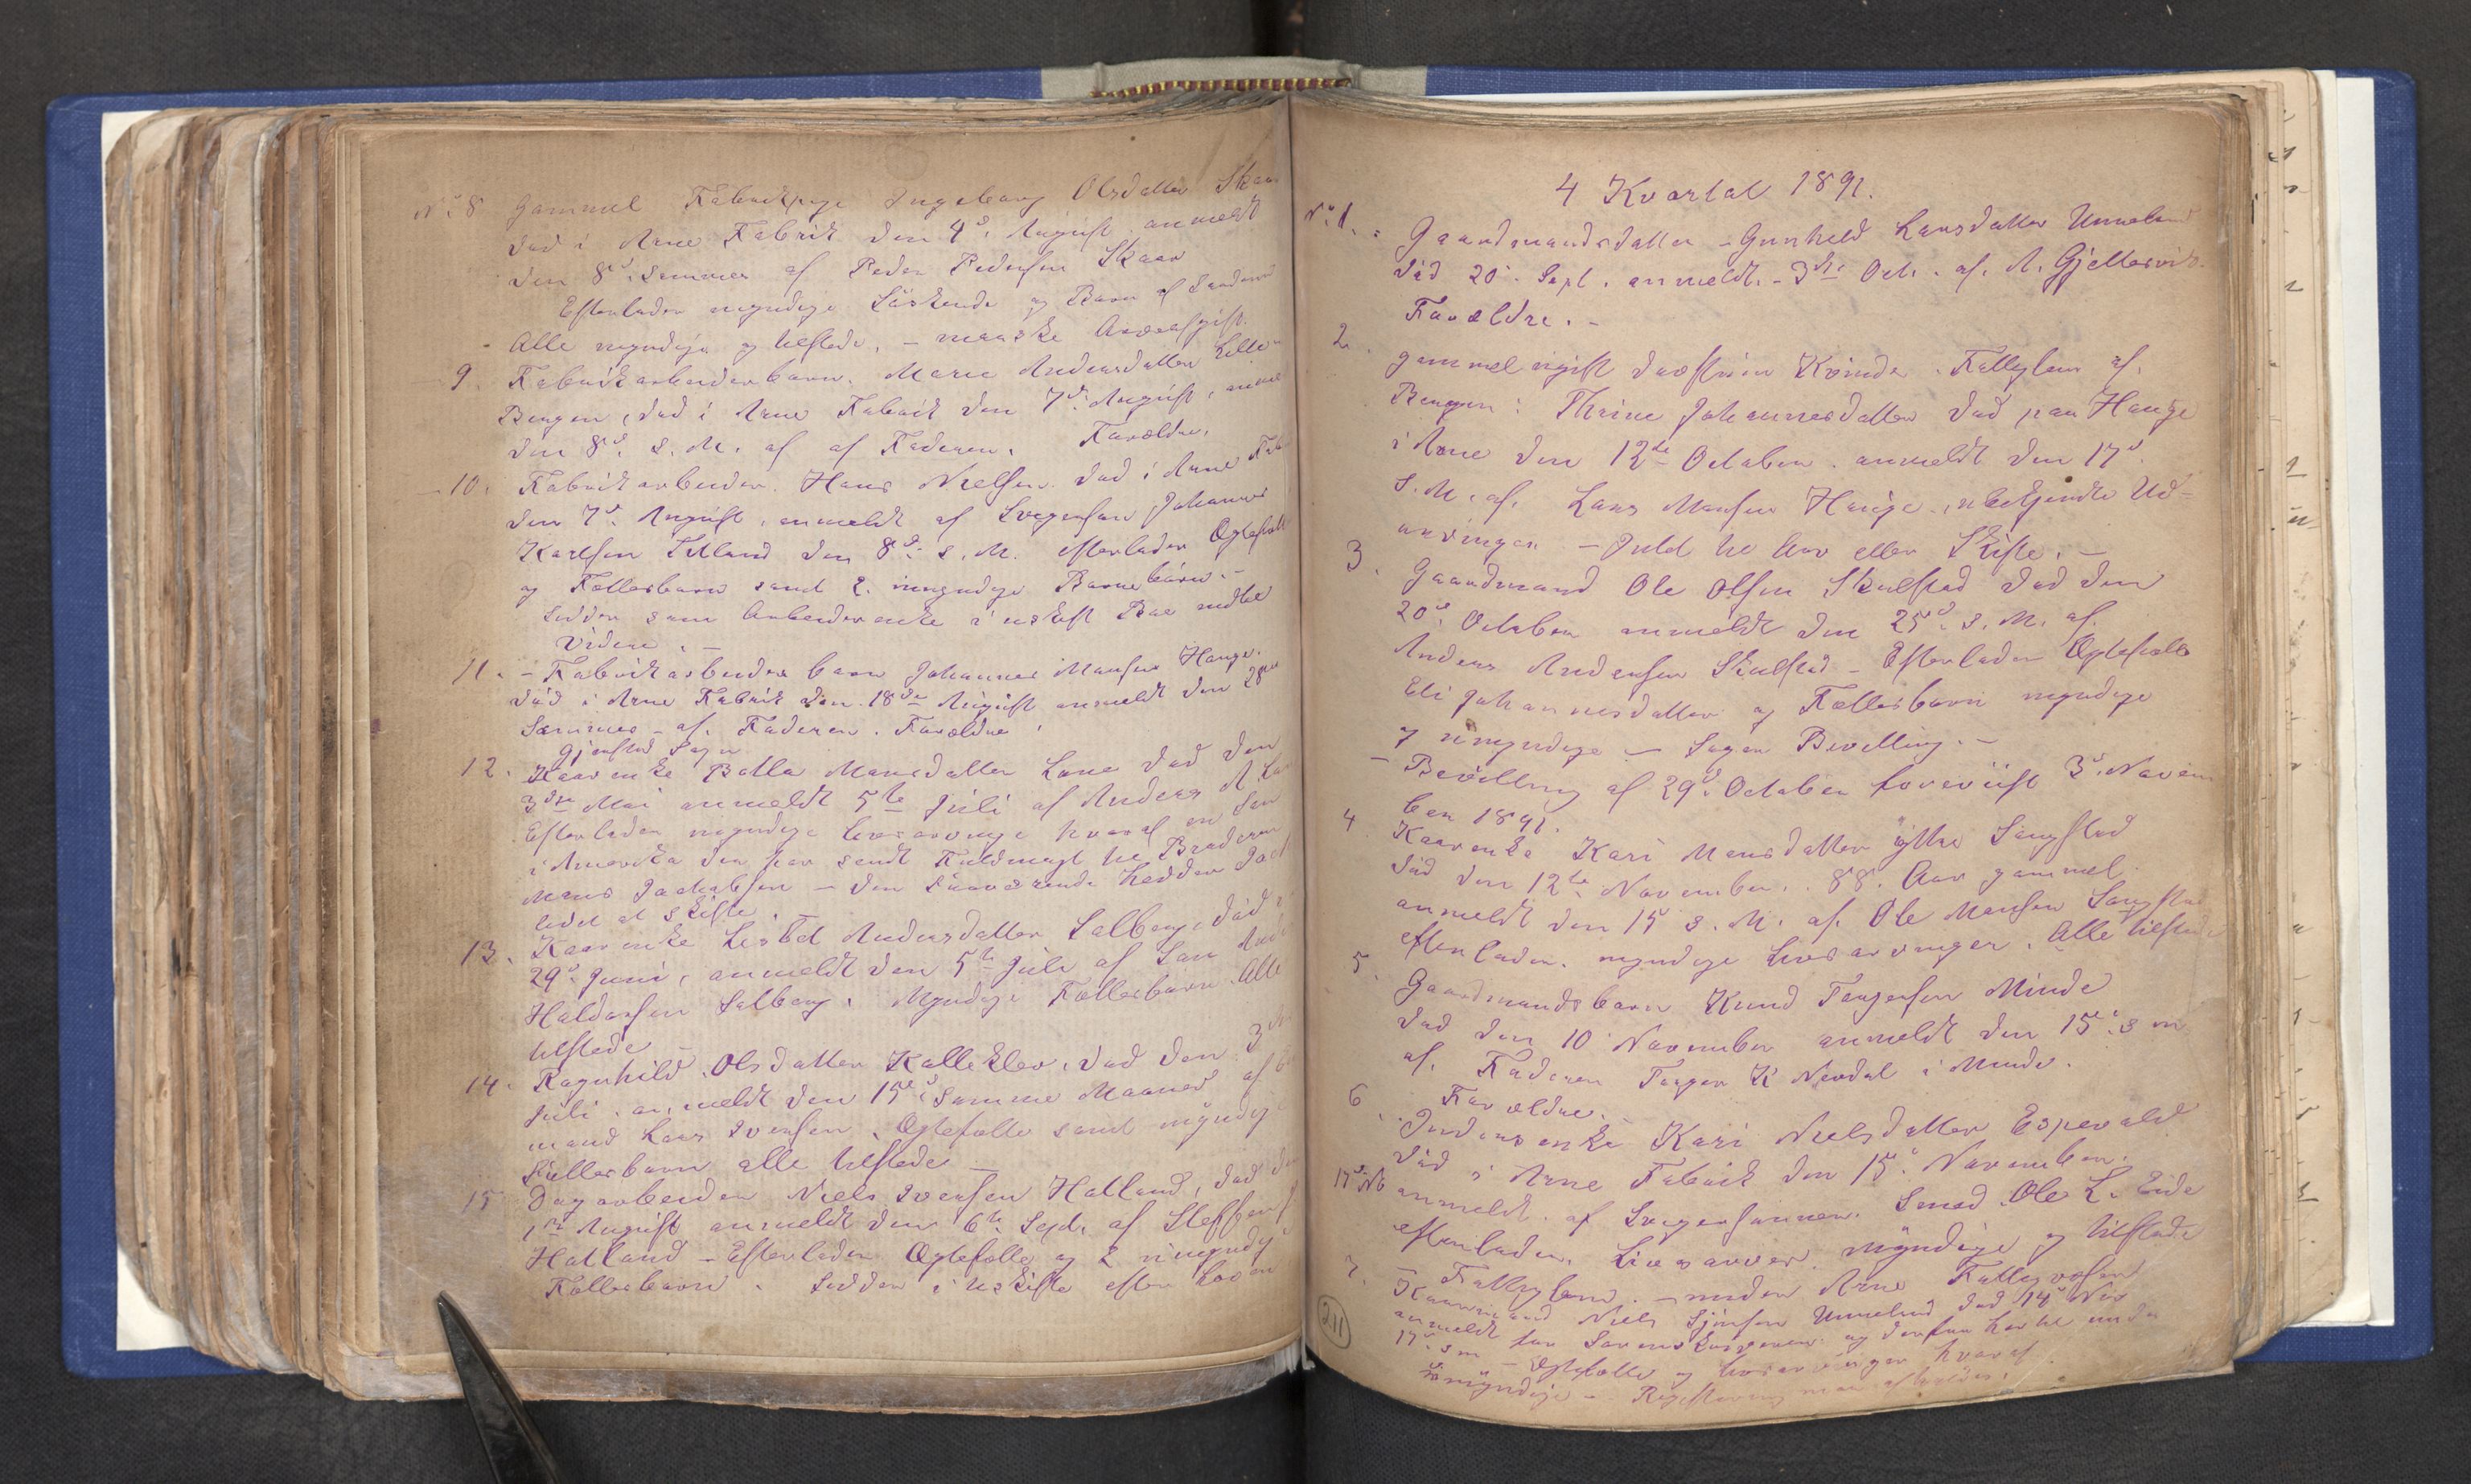 No 8 Gammel Fabrikpige Ingeborg Olsdatter Skaar
död i Arne Fabrik den 4d. August anmeldt
den 8d. Sammes af Peder Pedersen Skaar
Efterlader myndige Söskende og Börn af Saadanne
Alle myndige og tilstede, - maaske Arveafgift.
9. Fabrikarbeiderbarn. Marie Andersdatter Lille
Bergen, död i Arne Fabrik den 7d. August, anme
den 8d. s. M. af af Faderen. Forældre.
10. Fabrikarbeider. Hans Nielsen död i Arne Fab
den 7d. August, anmeldt af Svigersön Johannes
Karlsen den 8d. s. M. efterlader Ægtefælle
og Fællesbarn samt 2. umyndige Barnebörn. -
Sidder som Arbeiderenke i uskift Bo indtil
Videre. -
11. - Fabrikarbeiders barn Johannes Monsen Hauge.
död i Arne Fabrik den 18de August anmeldt den 28
Sammes - af. Faderen. Forældre.
Gjensted Sogn
12. Kaarenke Botla Monsdatter Lone död den
3die Mai anmeldt 5te Juli af Anders A. Lone
Efterlader myndige Livsarvinge hvoraf en Sön
i Amerika der har sendt Fuldmagt til Broderen
Mons Jackobsen - den fraværende hedder Jack
13. Kaarenke Lisbet Andersdatter Solberg, död
29d. Juni, anmeldt den 5te Juli af Sön And
Haldorsen Solberg. Myndige Fællesbörn. Alle
tilstede -
14. Ragnhild Olsdatter Kalleklev, död den 3
Juli. anmeldt den 15d Samme Maaned af
mand Lars Iversen. Ægtefælle samt myndige
Fællesbarn alle tilstede -
15 Dagarbeider Niels Iversen Hatland, död d
1ste August anmeldt den 6te Sept. af Steffen
Hatland - Efterlader Ægtefælle og 2 umyndige
Fællesbarn. Sidder i Uskifte efter Loven
4 Kvartal 1891.
No 1. Gaardmandsdatter - Gunhild Larsdatter Unneland
död 20. Sept. anmeldt - 3die Oct. af. A. Gjellesvik.
Forældre. -
2. gammel ugift Kvinde. Fattiglem af.
Bergen: Thrine Johannesdatter död paa Hauge
i Arne den 12te October. anmeldt den 17d.
s. M. af. Lars Monsen Hauge. ubekjendte Ud-
arvinger - Intet til Arv eller Skifte. -
3. Gaardmand Ole Olsen Skulstad död den
20d. October anmeldt den 25d. s. M. af.
Anders Andersen Skulstad - Efterlader Ægtefælle
Eli Johannesdatter og Fællesbörn myndige
7 umyndige - Söger Bevilling. -
- Bevilling af 29d. October foreviist 3d. Novem
ber 1891.
4. Kaarenke Kari Monsdatter yttre Songstad
död den 12te November. 88. Aar gammel.
anmeldt den 15 s. M. af. Ole Monsen Songstad
efterlader. myndige Livsarvinger. Alle tilstede
5. Gaardmandsbarn Knud Torgersen Minde
död den 10 November anmeldt den 15d. s m
af. Faderen Torger K Nerdal i Minde.
Forældre.
6. Inderstenke Kari Nielsdatter Espevald
död i Arne Fabrik den 15d. November.
17d. Nb anmeldt. af Svigersönnen. Smed Ole L. Eide
efterlader. Livsarver. myndige og tilstede
- Fattiglem. - under Arne Fattigvæsen
7. Kaarmand Niels Sjursen Unneland död 14d Nov
anmeldt for Sorenskriveren og derfra hertil under
17d. s m - Ægtefælle og Livsarvinger hvoraf
umyndige - Registrering maa afholdes.
211